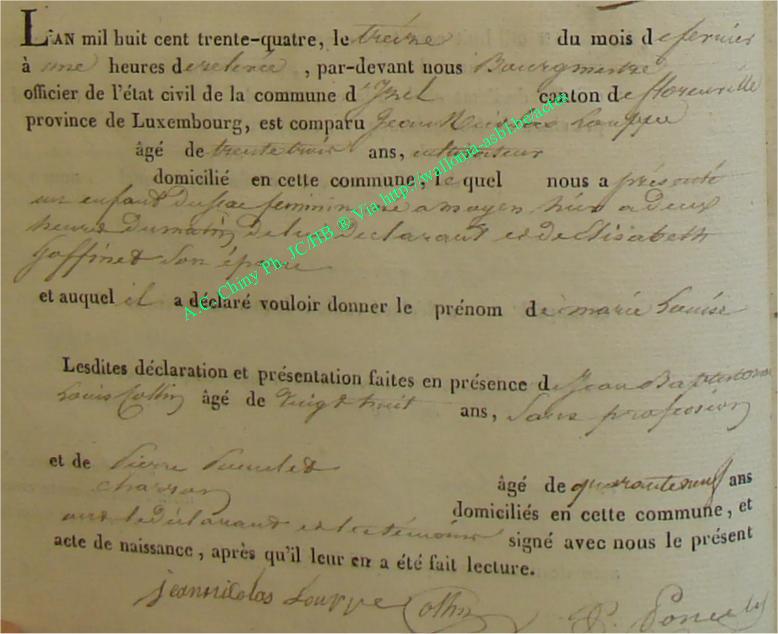 L'AN mil huit cent trente-quatre, le treize du mois de fevrier
à une heures de relevée, par-devant nous Bourgmestre
officier de l'état civil de la commune d'Izel canton de florenville
province de Luxembourg, est comparu Jean Nicolas Louppe
âgé de trente trois ans, cultivateur
domicilié en cette commune, le quel nous a présenté
un enfant du sexe feminin né a moyen hier a deux
heures du matin de lui declarant et de Elisabeth
Goffinet son épouse
et auquel il a déclaré vouloir donner le prénom de marie Louise
Lesdites déclaration et présentation faites en présence de Jean Baptiste
Louis Collin âgé de vingt huit ans, sans profession
et de Pierre Poncelet âgé de quarante neuf ans
charron domiciliés en cette commune, et
ont le déclarant et les témoins signé avec nous le présent
acte de naissance, après qu'il leur en a été fait lecture.
jean nicolas Louppe Collin P. Poncelet
A.C. Chiny Ph. JC/HB ® Via http://wallonia-asbl.be/actes